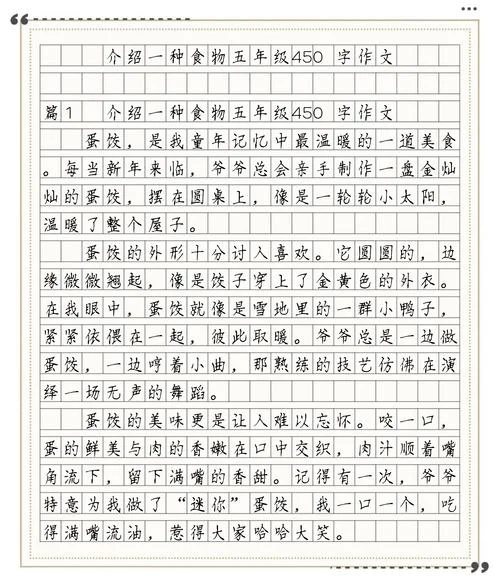 介绍一种食物五年级450 字作文
篇1 介绍一种食物五年级450 字作文
蛋饺，是我童年记忆中最温暖的一道美食
。每当新年来临，爷爷总会亲手制作一盘金灿
灿的蛋饺，摆在圆桌上，像是一轮轮小太阳，
温暖了整个屋子。
蛋饺的外形十分讨人喜欢。它圆圆的，边
缘微微翘起，像是饺子穿上了金黄色的外衣。
在我眼中，蛋饺就像是雪地里的一群小鸭子，
紧紧依偎在一起，彼此取暖。爷爷总是一边做
蛋饺，一边哼着小曲，那熟练的技艺仿佛在演
绎一场无声的舞蹈。
蛋饺的美味更是让人难以忘怀。咬一口，
蛋的鲜美与肉的香嫩在口中交织，肉汁顺着嘴
角流下，留下满嘴的香甜。记得有一次，爷爷
特意为我做了“迷你”蛋饺，我一口一个，吃
得满嘴流油，惹得大家哈哈大笑。